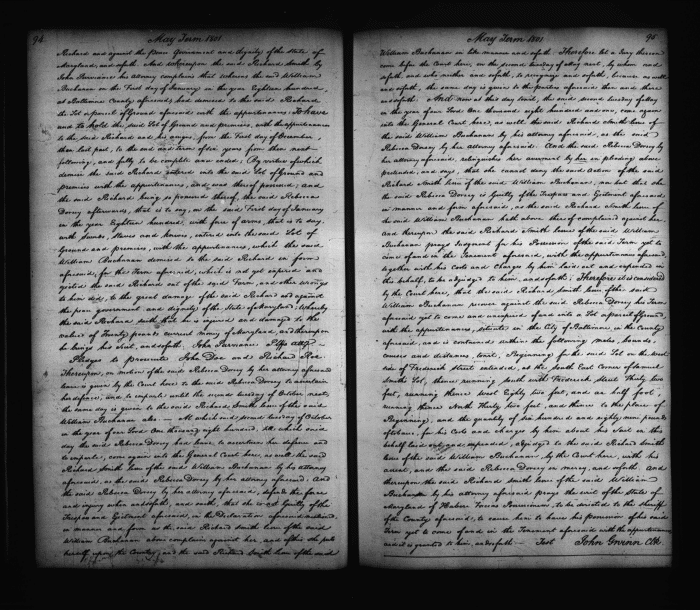 94
May Term 1801
Richard and against the peace Government and dignity of the State of
Maryland, and soforth. And whereupon the said Richard Smith by
John Purviance his attorney complains that whereas the said William
Buchanan on the First day of January in the year Eighteen hundred,
at Baltimore County aforesaid, had demised to the said Richard
the Lot or parcel of Ground aforesaid with the appurtenances; To have
and to hold the said Lot of Ground and premises, with the appurtenances
to the said Richard and his assigns, from the First day of December,
then last past, to the end and term of ten years from then next
following, and fully to be complete and ended; By virtue of which
demise the said Richard entered into the said Lot of Ground and
premises with the appurtenances, and was thereof possessed; and
the said Richard being so possessed thereof, the said Rebecca
Dorsey afterwards, that is to say, on the said First day of January
in the year Eighteen hundred, with force of arms, that is to say,
with Swords, Staves and knives, entered into the said Lot of
Ground and premises, with the appurtenances, which the said
William Buchanan demised to the said Richard in form
aforesaid, for the Term aforesaid, which is not yet expired and
ejected the said Richard out of the said Farm, and other wrongs
to him did, to the great damage of the said Richard and against
the peace government and dignity of the State of Maryland; Whereby
the said Richard saith that he is injured and damaged to the
value of Twenty pounds current money of Maryland, and thereupon
he brings his Suit, and soforth. John Purviance Plffs atty
Pledges to prosecute John Doe and Richard Roe
Thereupon, on motion of the said Rebecca Dorsey by her attorney aforesaid
leave is given by the Court here to the said Rebecca Dorsey to ascertain
her defence, and to imparle until the second tuesday of October next;
the same day is given to the said Richard Smith Lessee of the said
William Buchanan also. At which said second tuesday of October
in the year of our Lord One thousand eight hundred, At which said
day the said Rebecca Dorsey had leave to ascertain her defence and
to imparle, come again into the General Court here, as well the said
Richard Smith Lessee of the said William Buchanan by his attorney
aforesaid, as the said Rebecca Dorsey by her attorney aforesaid. And
the said Rebecca Dorsey by her attorney aforesaid, defends the force
and injury when and soforth, and saith, that she is not Guilty of the
Trespass and Ejectment aforesaid, in the Declaration aforementioned in
manner and form as the said Richard Smith Lessee of the said
William Buchanan above complains against her, and of this she puts
herself upon the Country; and the said Richard Smith Lessee of the said
May Term 1801
95
William Buchanan in like manner and soforth. Therefore let a Jury thereon
come before the Court here, on the second tuesday of May next, by whom and
soforth, and who neither and soforth, to recognize and soforth, because as well
and soforth, the same day is given to the parties aforesaid then and there
and soforth. At which said second tuesday of May
in the year of our Lord One thousand eight hundred and one, come again
into the General Court here, as well the said Richard Smith Lessee of
the said William Buchanan by his attorney aforesaid, as the said
Rebecca Dorsey by her attorney aforesaid. And the said Rebecca Dorsey by
her attorney aforesaid, relinquishes her averment by her in pleading above
pretended, and says, that she cannot deny the said Action of the said
Richard Smith Lessee of the said William Buchanan, nor but that she
the said Rebecca Dorsey is Guilty of the Trespass and Ejectment aforesaid
in manner and form aforesaid as the said Richard Smith Lessee of
the said William Buchanan hath above thereof complained against her,
and thereupon the said Richard Smith Lessee of the said William
Buchanan prays Judgment for his Possession of the said Term yet to
come of and in the Tenement aforesaid, with the appurtenances aforesaid,
together with his Costs and Charges by him laid out and expended in
this behalf, to be adjudged to him, and soforth. Therefore it is considered
by the Court here, that the said Richard Smith Lessee of the said
William Buchanan recover against the said Rebecca Dorsey his Term
aforesaid yet to come and unexpired of and into a Lot or parcel of Ground,
with the appurtenances, situate in the City of Baltimore, in the County
aforesaid, and is contained within the following metes, bounds,
courses and distances, towit, Beginning for the said Lot on the West
side of Frederick Street extended, at the South East Corner of Samuel
Smiths Lot, thence running South with Frederick Street Thirty two
feet, running thence West Eighty two feet, and an half foot,
running thence North Thirty two feet, and thence to the place of
Beginning; and the quantity of six hundred and eighty nine pounds
of tobacco, for his Costs and Charges by him about his Suit in this
behalf laid out and expended, adjudged to the said Richard Smith
Lessee of the said William Buchanan, by the Court here, with his
assent, and the said Rebecca Dorsey in mercy, and soforth. And
thereupon the said Richard Smith Lessee of the said William
Buchanan by his attorney aforesaid prays the writ of the State of
Maryland of Habere Facias Possessionem, to be directed to the sheriff
of the County aforesaid, to cause him to have his possession of his said
Term yet to come of and in the Tenement aforesaid with the appurtenances
and it is granted to him, and soforth — Test John Gwinn Clk